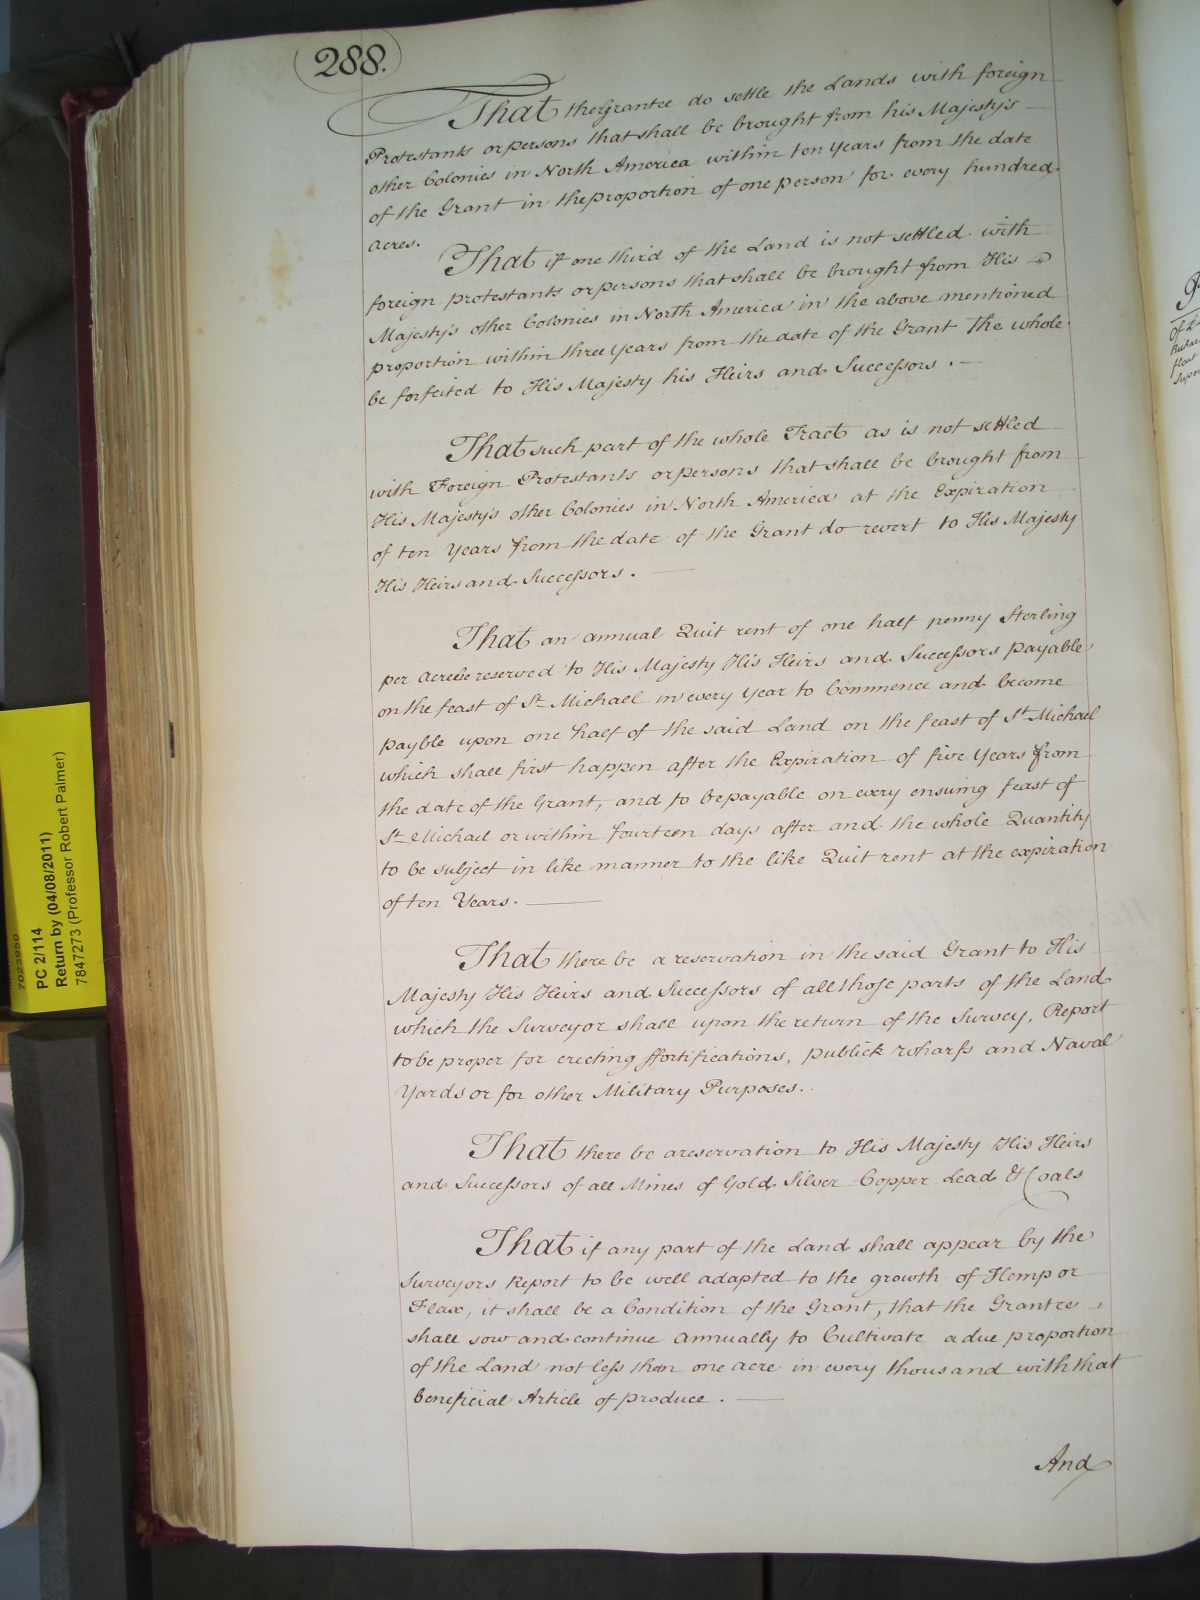 288.
That the Grantee do settle the Lands with foreign
Protestants or persons that shall be brought from his Majesty's
other Colonies in North America within ten years from the date
of the Grant in the proportion of one person for every hundred
acres.
That if one third of the Land is not settled with
foreign protestants or persons that shall be brought from His
Majesty's other Colonies in North America in the above mentioned
proportion within three years from the date of the Grant The whole
be forfeited to His Majesty his Heirs and Successors.
That such part of the whole Tract as is not settled
with Foreign Protestants or persons that shall be brought from
His Majesty's other Colonies in North America at the Expiration
of ten Years from the date of the Grant do revert to His Majesty
His Heirs and Successors.
That an annual Quit rent of one half penny Sterling
per Acre be reserved to His Majesty His Heirs and Successors payable
on the feast of St. Michael in every year to Commence and become
payble upon one half of the said Land on the feast of St. Michael
which shall first happen after the Expiration of five Years from
the date of the Grant, and to be payable on every ensuing feast of
St. Michael or within fourteen days after and the whole Quantity
to be subject in like manner to the like Quit rent at the expiration
of ten Years.
That there be a reservation in the said Grant to His
Majesty His Heirs and Successors of all those parts of the Land
which the Surveyor shall upon the return of the Survey, Report
to be proper for erecting ffortifications, publick wharfs and Naval
Yards or for other Military Purposes.
That there be a reservation to His Majesty His Heirs
and Successors of all Mines of Gold Silver Copper Lead & Coals
That if any part of the Land shall appear by the
Surveyors Report to be well adapted to the growth of Hemp or
Flax, it shall be a Condition of the Grant, that the Grantee
shall sow and continue annually to Cultivate a due proportion
of the Land not less than one acre in every thousand with that
beneficial Article of produce.
And
7023950
PC 2/114
Return by (04/08/2011)
7847273 (Professor Robert Palmer)